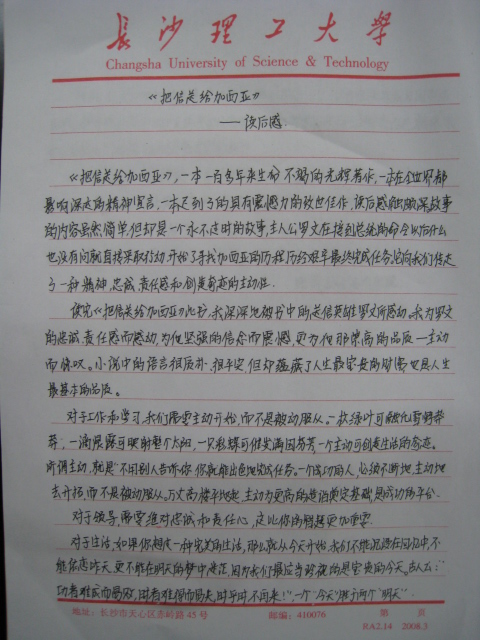 長沙理工大學
Changsha University of Science & Technology
《把信送给加西亚》
——读后感
《把信送给加西亚》,一本一百多年来生命不竭的光辉著作,一本在全世界都
影响深远的精神宣言,一本足到了的具有震撼力的励志佳作,读后感触颇深故事
的内容虽然简单,但却是一个永不过时的故事,主人公罗文在接到总统的命令以后什么
也没有问就直接采取行动,开始了寻找加西亚的历程历经艰辛最终完成任务,它向我们传达
了一种精神,忠诚,责任感和创造奇迹的主动性.
读完《把信送给加西亚》此书,我深深地被书中的送信英雄罗文所感动。我为罗文
的忠诚责任感而感动,为他坚强的信念而震憾,更为他那崇高的品质—主动
而惊叹。小说中的语言很质朴.很平实,但却蕴藏了人生最宝贵的财富也是人生
最基本的品质。
对于工作和学习,我们需要主动开始,而不是被动服从。一枚绿叶可融化雪野莽
莽;一滴晨露可映射整个太阳,一只彩蝶可催发满园芬芳,一个主动可创造生活的奇迹。
所谓主动,就是“不用别人告诉你,你就能出色地完成任务。一个成功的人,必须不断地主动地
去开拓,而不是被动服从。万丈高楼平地起,主动为更高的建筑奠定基础是成功的平台.
对于领导,需要绝对忠诚和责任心,这比你的智慧更加重要.
对于生活,如果你想过一种完美的生活,那么就从今天开始,我们不能沉浸在回忆中,不
能依恋昨天,更不能在明天的梦中度茫,因为我们最应当珍视的是宝贵的今天。古人云:“
功者难成而易败,时者难得而易失,时乎时不再来!”,一个“今天”胜于两个“明天”.
地址:长沙市天心区赤岭路45号
邮编:410076
第 页
RA2.14 2008.3